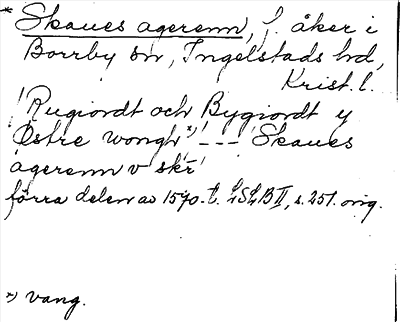 * Skaues agerenn, f. åker i
Borrby sn, Ingelstads hd,
Krist. l.
'Rugiordt och Bygiordt y
Østre wongh *)' --- 'Skaues
agerenn v skr'
förra delen av 1570-t. LSLB II, s. 251. orig.
*) vang.